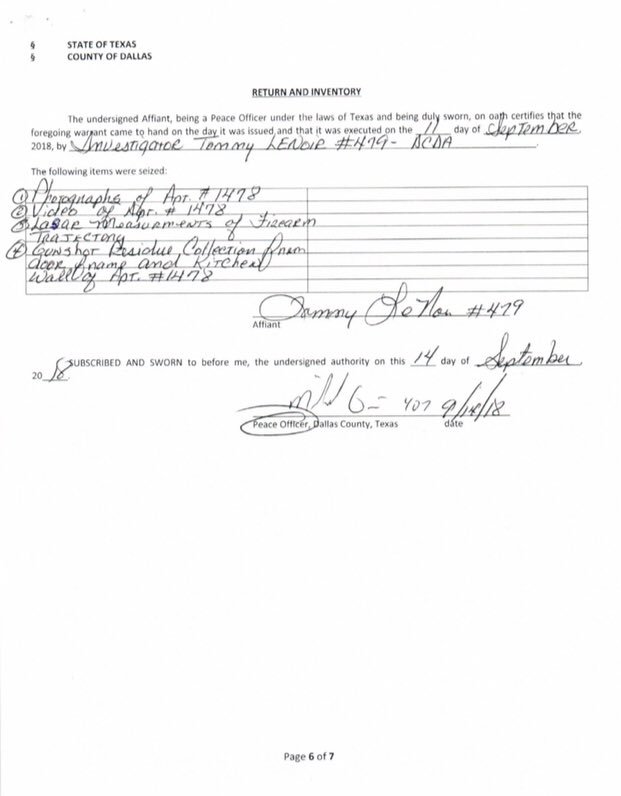 § STATE OF TEXAS
§ COUNTY OF DALLAS
RETURN AND INVENTORY
The undersigned Affiant, being a Peace Officer under the laws of Texas and being duly sworn, on oath certifies that the
foregoing warrant came to hand on the day it was issued and that it was executed on the 11 day of September
2018, by Investigator Tommy LENOIR #479 - DCDA.
The following items were seized:
① Photographs of Apt. #1478
② Video of Apt. #1478
③ Lasar Measurments of Firearm
Trajectory
④ Gunshot Residue Collection from
door frame and Kitchen
Wall of Apt. #1478
Tommy LeNoir #479
Affiant
SUBSCRIBED AND SWORN to before me, the undersigned authority on this 14 day of September
20 18.
407 9/14/18
Peace Officer, Dallas County, Texas date
Page 6 of 7